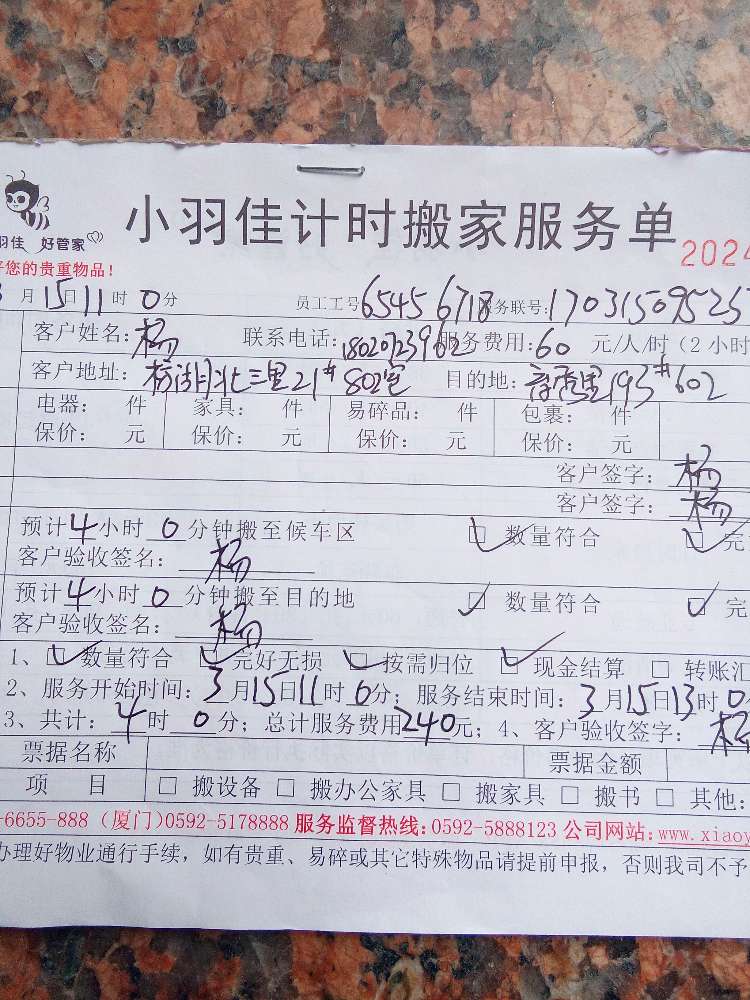 小羽佳计时搬家服务单
羽佳 好管家
2024
您的贵重物品！
月15日11时0分 员工工号6545 6718 服务联号：170315095257
客户姓名：杨 联系电话：18020723962 服务费用：60 元/人/时（2小时
客户地址：杨湖北三里21# 802室 目的地：193#602
电器： 件 家具： 件 易碎品： 件 包裹： 件
保价： 元 保价： 元 保价： 元 保价： 元
客户签字：杨
客户签字：杨
预计4小时0分钟搬至候车区 数量符合 完
客户验收签名：杨
预计4小时0分钟搬至目的地 数量符合 完
客户验收签名：杨
1、数量符合 完好无损 按需归位 现金结算 转账汇
2、服务开始时间：3月15日11时0分；服务结束时间：3月15日13时0
3、共计：4时0分；总计服务费用240元；4、客户验收签字：杨
票据名称 票据金额
项 目 □ 搬设备 □ 搬办公家具 □ 搬家具 □ 搬书 □ 其他：
-6655-888（厦门）0592-5178888 服务监督热线：0592-5888123 公司网站：www.xiaoy
办理好物业通行手续，如有贵重、易碎或其它特殊物品请提前申报，否则我司不予